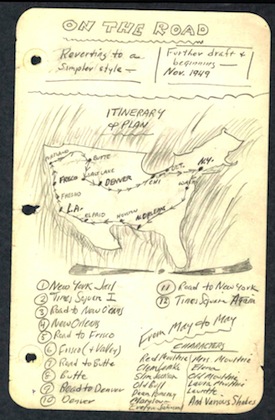 ON THE ROAD
Reverting to a
Simpler style —
Further draft &
beginning —
Nov. 1949
ITINERARY
& PLAN
PORTLAND
BUTTE
SALT LAKE
FRISCO
DENVER
CHI
N.Y.
WASH
FRESNO
L.A.
EL PASO
HOUSTON
N. ORLEANS
① New York Jail
② Times Square I
③ Road to New Orleans
④ New Orleans
⑤ Road to Frisco
⑥ Frisco (& Valley)
⑦ Road to Butte
⑧ Butte
⑨ Road to Denver
⑩ Denver
⑪ Road to New York
⑫ Times Square Again
From May to May
CHARACTERS
Red Moultrie
Slim Jackson
Old Bull
Dean Pomeray
Mrs. Moultrie
Old Moultrie
Laura Moultrie
And Various Shades